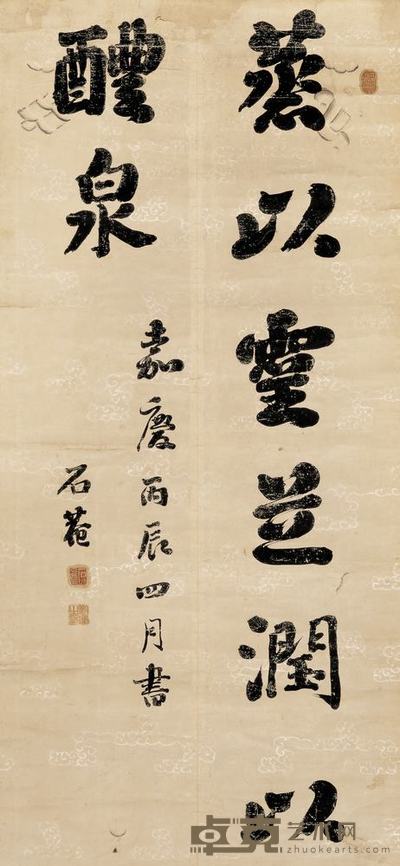 蒸以靈芝潤以
醴泉
嘉慶丙辰四月書
石菴
卓克艺术网
www.zhuokearts.com